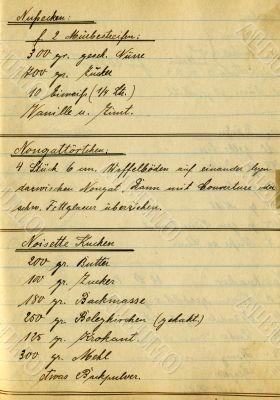 Nußecken:
f. 2 Mürbestreifen:
300 gr. gesch. Nüsse
400 gr. Zucker
10 Eiweiß (1/4 Ltr.)
Vanille u. Zimt.
Nougattörtchen:
4 Stück 6 cm, Waffelböden auf einander legen
dazwischen Nougat. Dann mit Couverture oder
schw. Fettglasur überziehen.
Noisette Kuchen
200 gr. Butter
100 gr. Zucker
180 gr. Backmasse
250 gr. Belegkirschen (gehakt.)
125 gr. Krokant.
300 gr. Mehl
etwas Backpulver.